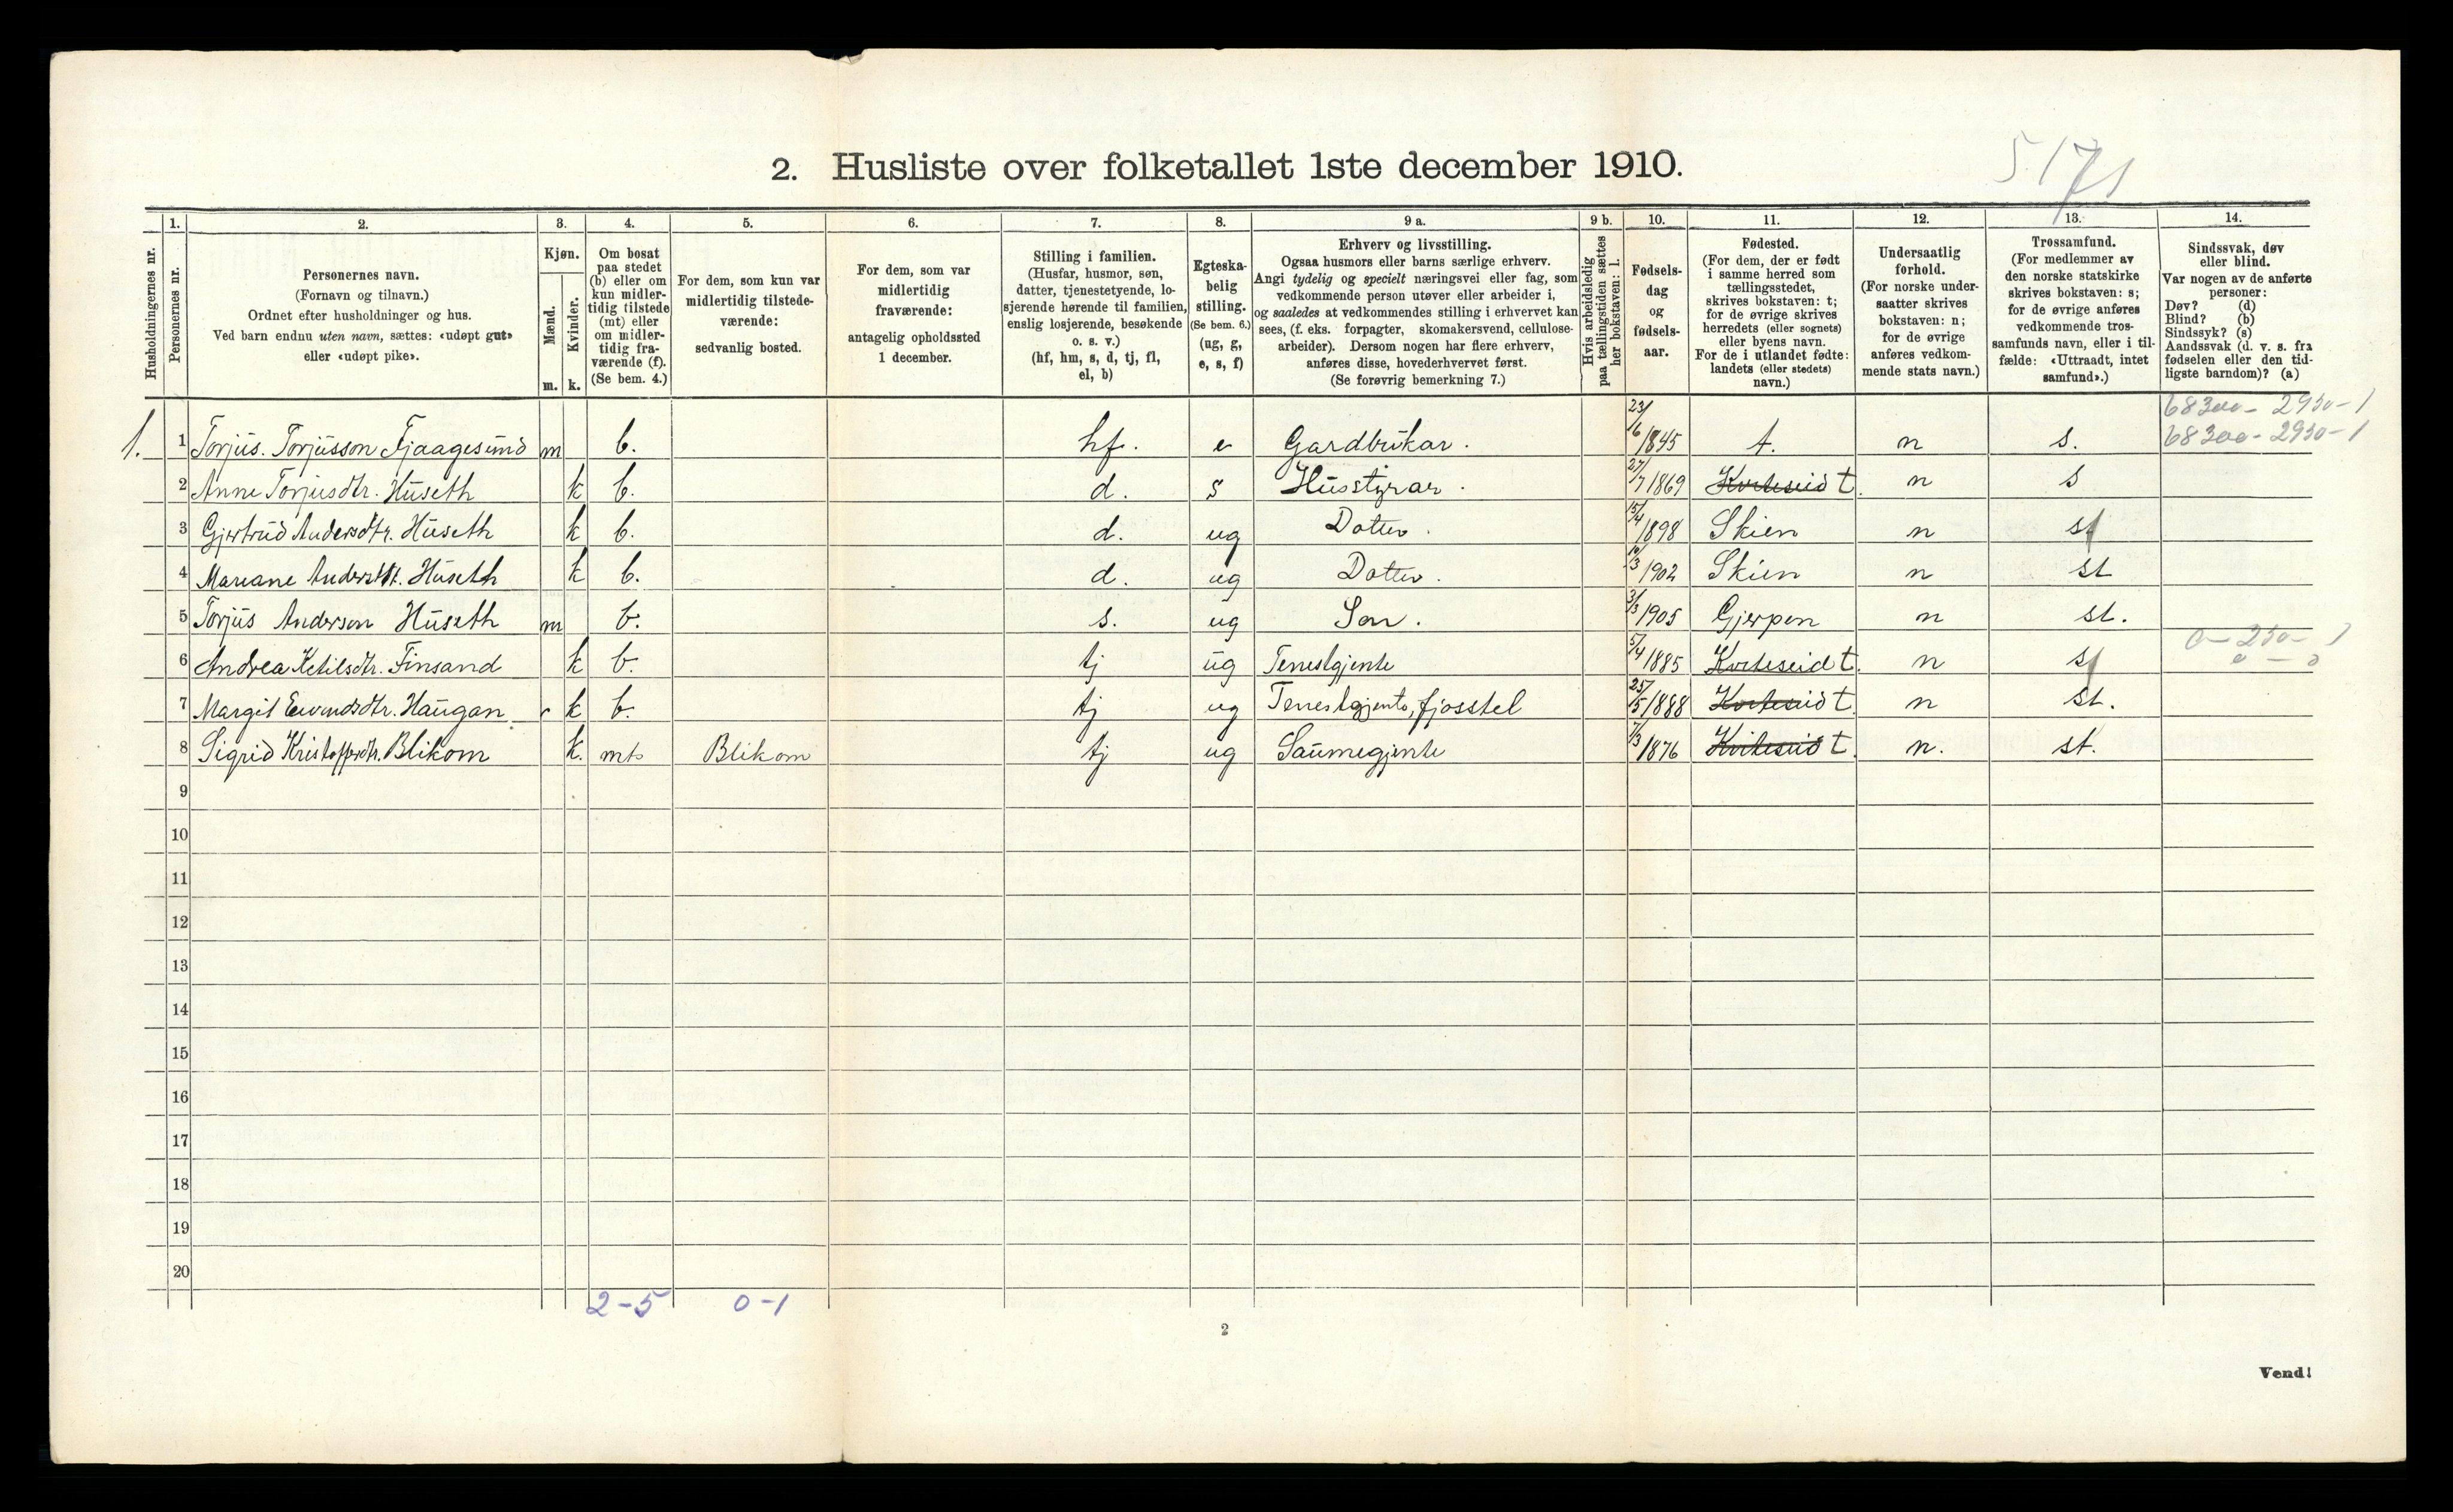 5171
2. Husliste over folketallet 1ste december 1910.
1. 2. 3. 4. 5. 6. 7. 8. 9 a. 9 b. 10. 11. 12. 13. 14.
Husholdningernes nr.
Personernes nr.
Personernes navn.
(Fornavn og tilnavn.)
Ordnet efter husholdninger og hus.
Ved barn endnu uten navn, sættes: «udøpt gut»
eller «udøpt pike».
Kjøn.
Mænd.
Kvinder.
m. k.
Om bosat
paa stedet
(b) eller om
kun midler-
tidig tilstede
(mt) eller
om midler-
tidig fra-
værende (f).
(Se bem. 4.)
For dem, som kun var
midlertidig tilstede-
værende:
sedvanlig bosted.
For dem, som var
midlertidig
fraværende:
antagelig opholdssted
1 december.
Stilling i familien.
(Husfar, husmor, søn,
datter, tjenestetyende, lo-
sjerende hørende til familien,
enslig losjerende, besøkende
o. s. v.)
(hf, hm, s, d, tj, fl,
el, b)
Egteska-
belig
stilling.
(Se bem. 6.)
(ug, g,
e, s, f)
Erhverv og livsstilling.
Ogsaa husmors eller barns særlige erhverv.
Angi tydelig og specielt næringsvei eller fag, som
vedkommende person utøver eller arbeider i,
og saaledes at vedkommendes stilling i erhvervet kan
sees, (f. eks. forpagter, skomakersvend, cellulose-
arbeider). Dersom nogen har flere erhverv,
anføres disse, hovederhvervet først.
(Se forøvrig bemerkning 7.)
Hvis arbeidsledig
paa tællingstiden sættes
her bokstaven: l.
Fødsels-
dag
og
fødsels-
aar.
Fødested.
(For dem, der er født
i samme herred som
tællingsstedet,
skrives bokstaven: t;
for de øvrige skrives
herredets (eller sognets)
eller byens navn.
For de i utlandet fødte:
landets (eller stedets)
navn.)
Undersaatlig
forhold.
(For norske under-
saatter skrives
bokstaven: n;
for de øvrige
anføres vedkom-
mende stats navn.)
Trossamfund.
(For medlemmer av
den norske statskirke
skrives bokstaven: s;
for de øvrige anføres
vedkommende tros-
samfunds navn, eller i til-
fælde: «Uttraadt, intet
samfund».)
Sindssvak, døv
eller blind.
Var nogen av de anførte
personer:
Døv? (d)
Blind? (b)
Sindssyk? (s)
Aandssvak (d. v. s. fra
fødselen eller den tid-
ligste barndom)? (a)
68300 - 2950 - 1
1. 1 Torjus. Torjusson Fjaagesund m b. hf. e Gardbrukar. 23/6 1845 t. n s. 68300 - 2930 - 1
2 Anne Torjusdtr. Huseth k b. d. s Husstyrar. 27/7 1869 Kviteseid t. n s
3 Gjertrud Andersdtr. Huseth k b. d. ug Dotter. 15/4 1898 Skien n st
4 Mariane Andersdt. Huseth k b. d. ug Dotter. /3 1902 Skien n st
5 Torjus Anderson Huseth m b. s. ug Son. 3/3 1905 Gjerpen n st.
6 Andrea Ketilsdtr. Finsand k b. tj ug Tenestgjente 5/4 1885 Kviteseid t. n st 0 - 250 - 
7 Margit Eivindsdtr. Haugan k b. tj ug Tenestgjente, fjosstel 25/5 1888 Kviteseid t n st.
8 Sigrid Kristoffersdtr. Blikom k. mt Blikom tj ug Saumegjente 7/3 1876 Kviteseid t. n. st.
9
10
11
12
13
14
15
16
17
18
19
20
2-5 0-1
2
Vend!